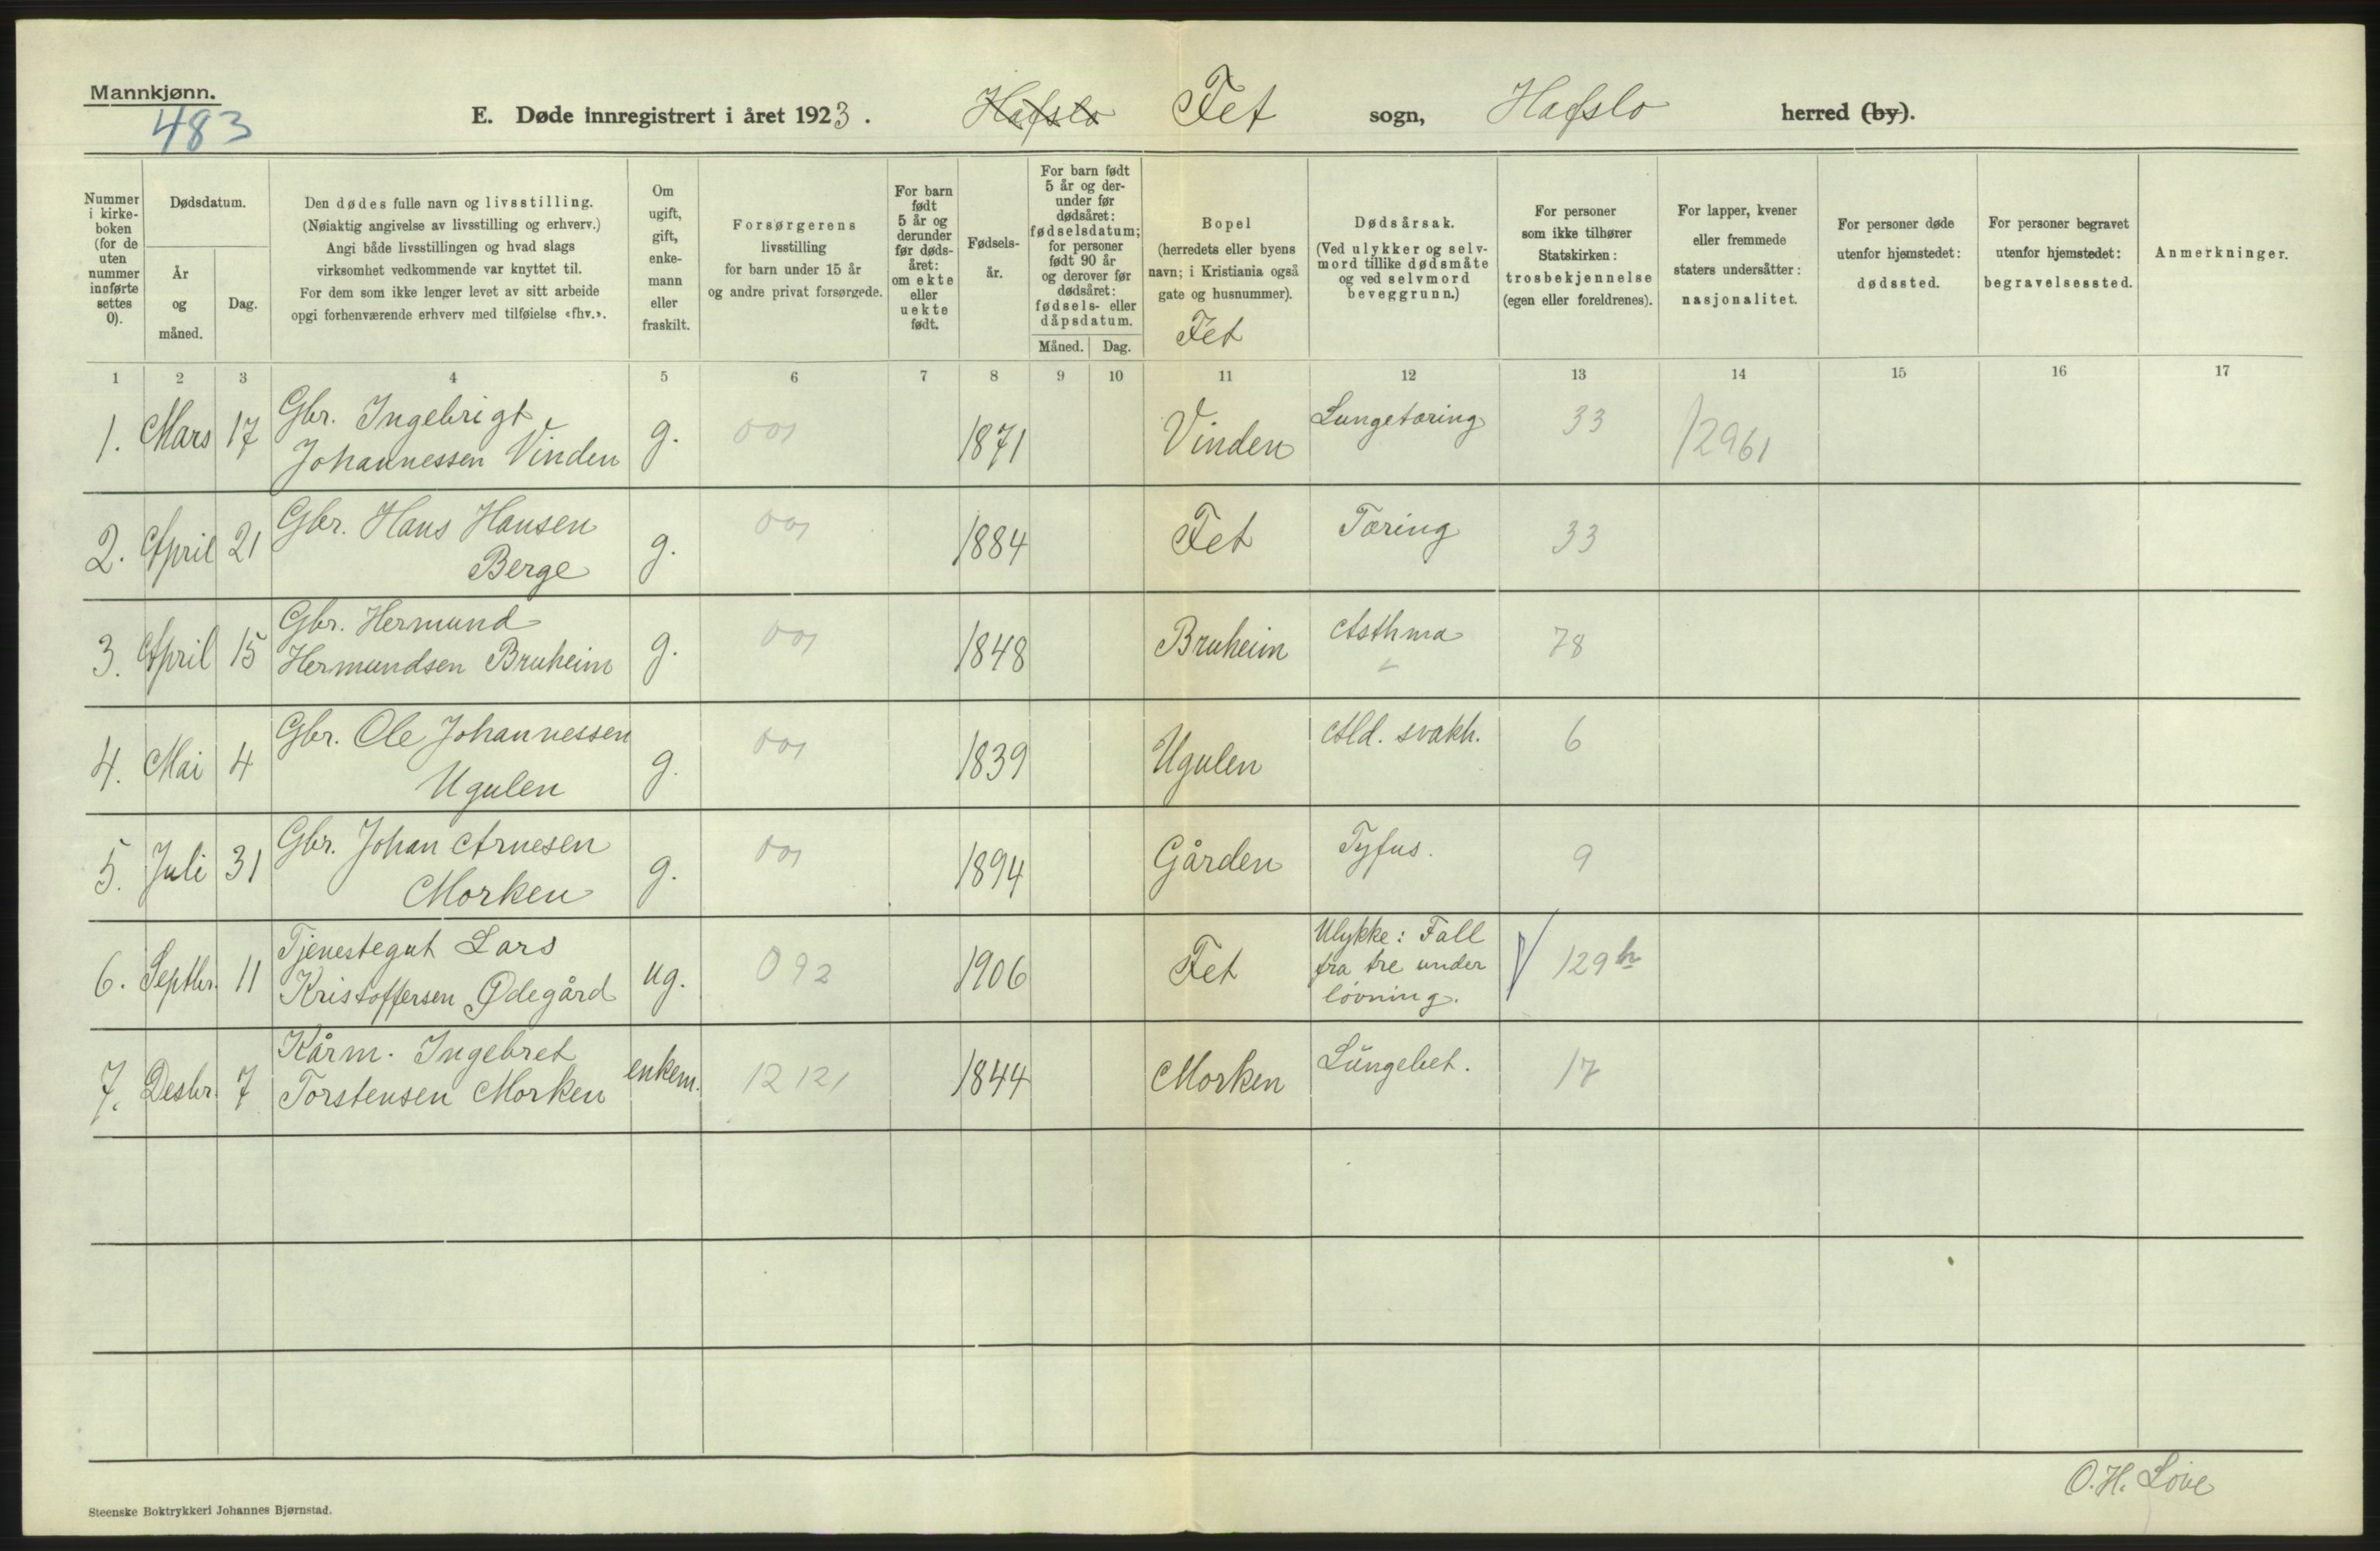 Mannkjønn.
483
E. Døde innregistrert i året 1923. Hafslo Fet sogn, Hafslo herred (by).
Nummer i kirke-boken (for de uten nummer innførte settes 0).
Dødsdatum.
År og måned.
Dag.
Den dødes fulle navn og livsstilling.
(Nøiaktig angivelse av livsstilling og erhverv.)
Angi både livsstillingen og hvad slags
virksomhet vedkommende var knyttet til.
For dem som ikke lenger levet av sitt arbeide
opgi forhenværende erhverv med tilføielse «fhv.».
Om ugift, gift, enke-mann eller fraskilt.
Forsørgerens
livsstilling
for barn under 15 år
og andre privat forsørgede.
For barn født 5 år og derunder før døds-året: om ekte eller uekte født.
Fødsels-år.
For barn født 5 år og der-under før dødsåret: fødselsdatum; for personer født 90 år og derover før dødsåret: fødsels- eller dåpsdatum.
Måned. Dag.
Bopel
(herredets eller byens
navn; i Kristiania også
gate og husnummer).
Fet
Dødsårsak.
(Ved ulykker og selv-
mord tillike dødsmåte
og ved selvmord
beveggrunn.)
For personer
som ikke tilhører
Statskirken:
trosbekjennelse
(egen eller foreldrenes).
For lapper, kvener
eller fremmede
staters undersåtter:
nasjonalitet.
For personer døde
utenfor hjemstedet:
dødssted.
For personer begravet
utenfor hjemstedet:
begravelsessted.
Anmerkninger.
1 2 3 4 5 6 7 8 9 10 11 12 13 14 15 16 17
1. Mars 17 Gbr. Ingebrigt Johannessen Vinden g. 001 1871 Vinden Lungetæring 33 12961
2. April 21 Gbr. Hans Hansen Berge g. 001 1884 Fet Tæring 33
3. April 15 Gbr. Hermund Hermundsen Bruheim g. 001 1848 Bruheim Asthma 78
4. Mai 4 Gbr. Ole Johannessen Ugulen g. 001 1839 Ugulen Ald. svakh. 6
5. Juli 31 Gbr. Johan Arnesen Morken g. 001 1894 Gården Tyfus. 9
6. Septbr. 11 Tjenestegut Lars Kristoffersen Ødegård ug. 092 1906 Fet Ulykke: Fall fra tre under løvning. 129
7. Desbr. 7 Kårm. Ingebret Torstensen Morken enkem. 12 121 1844 Morken Lungebet. 17
O. H. Løve
Steenske Boktrykkeri Johannes Bjørnstad.